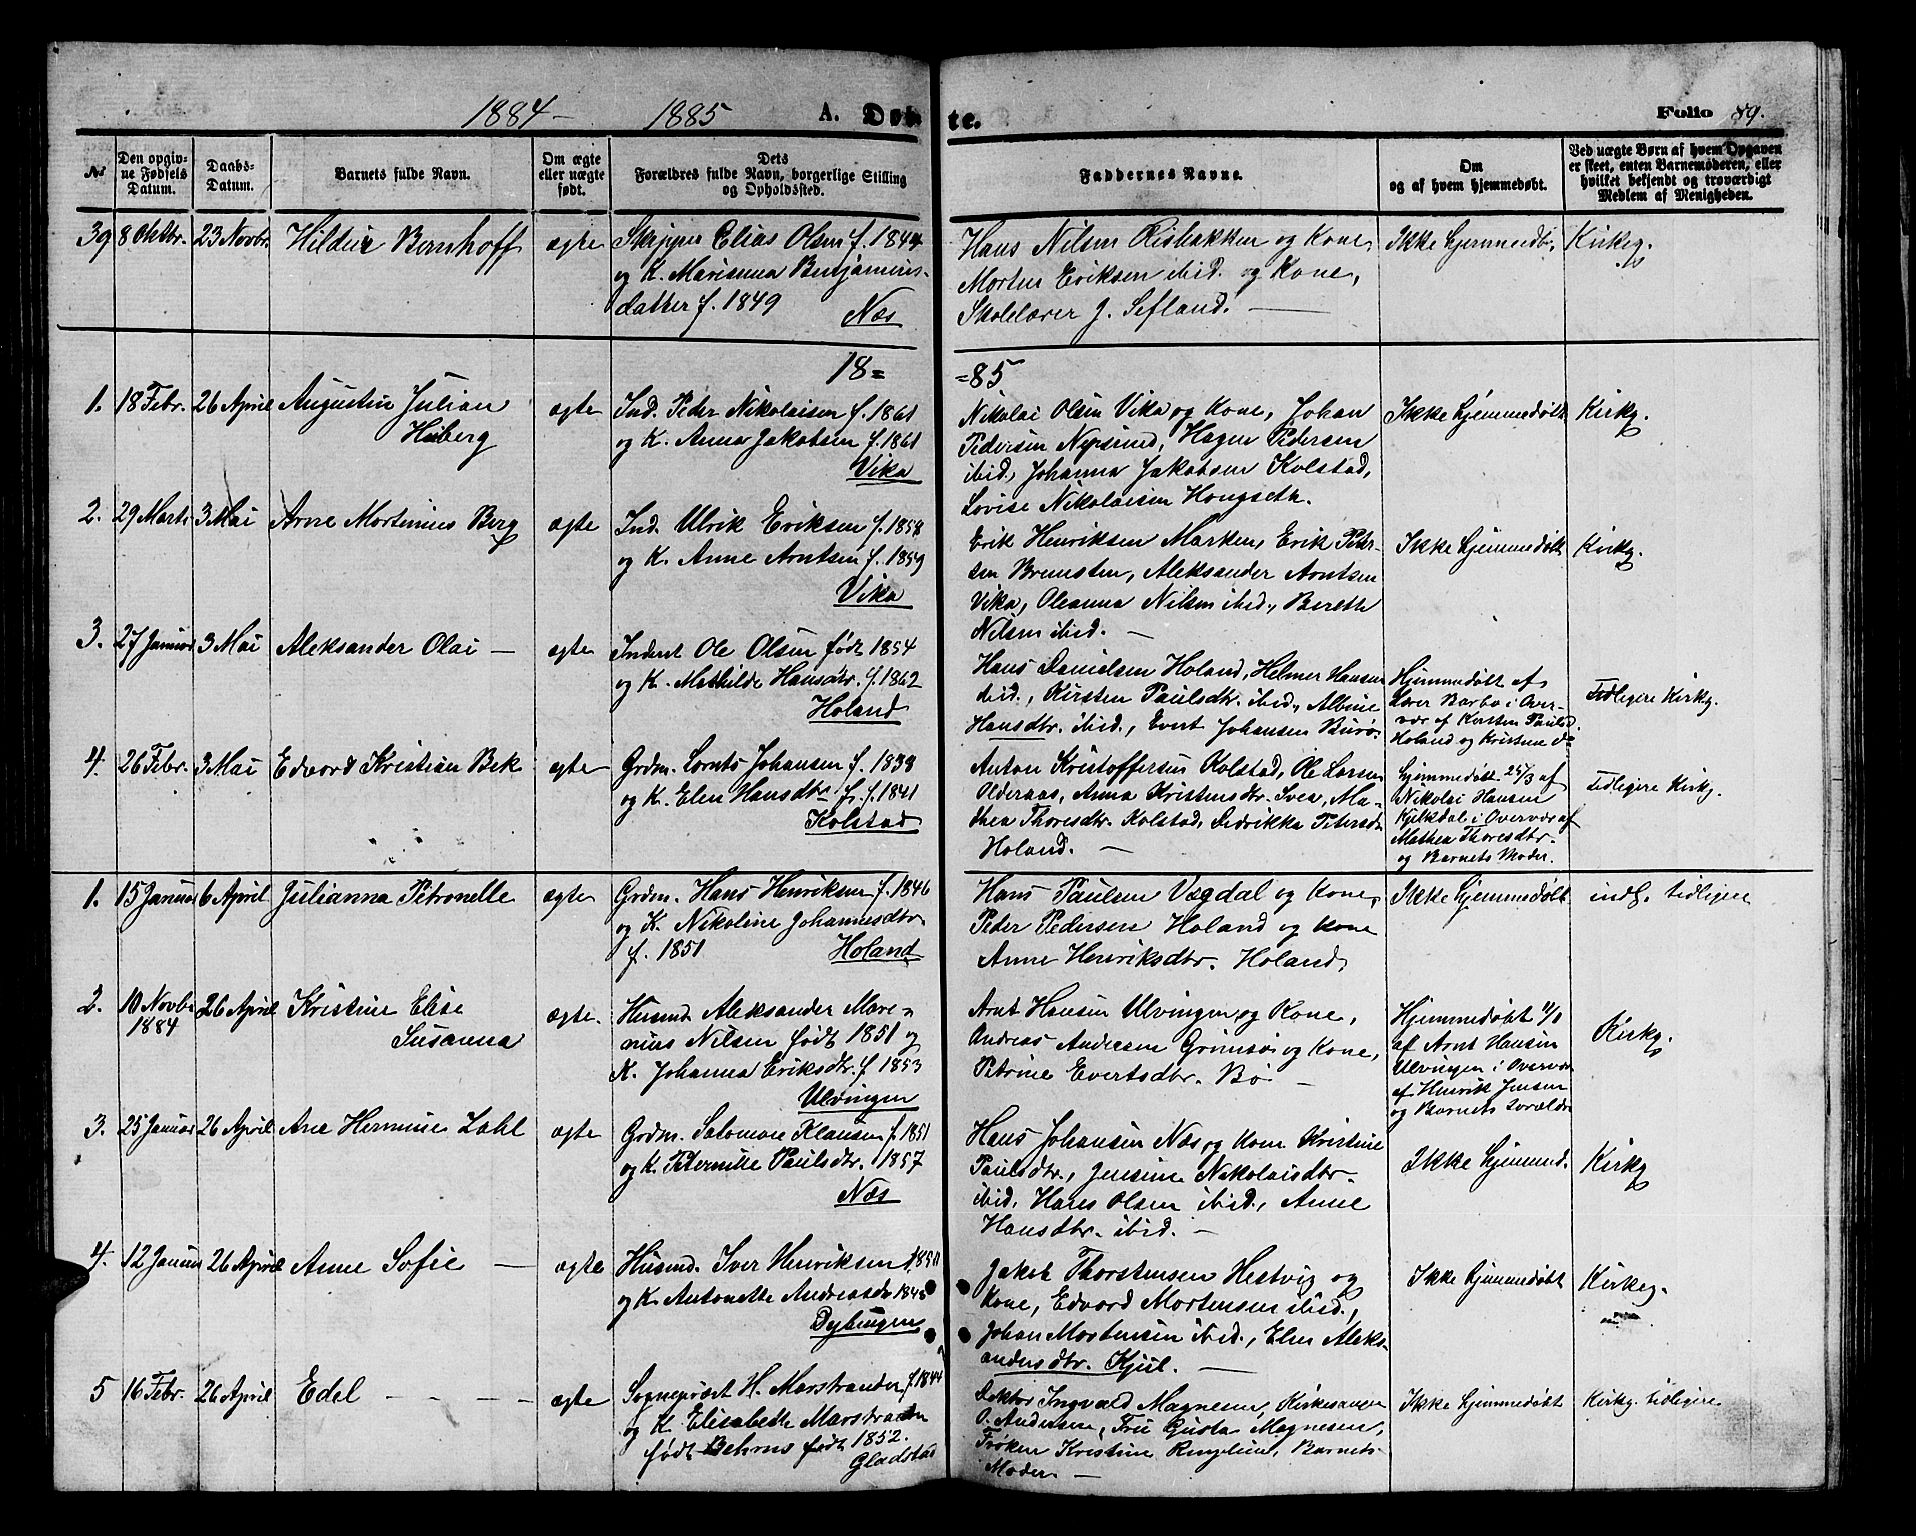 1884- 1885 A. Døbte. Folio 89.
No
Den opgivne Fødsels Datum.
Daabs-Datum.
Barnets fulde Navn.
Om ægte eller uægte født.
Dets Forældres fulde Navn, borgerlige Stilling og Opholdssted.
Faddernes Navne.
Om og af hvem hjemmedøbt.
Ved uægte Børn af hvem Opgaven er skeet, enten Barnemoderen, eller hvilket bekjendt og troværdigt Medlem af Menigheden.
39 8 Oktbr. 23 Novbr. Hildur Bernhoff ægte
Skipper Elias Olsen f. 1844
og K. Marianna Benjamins-
datter f. 1849
Næs
Hans Nilsen Risbakken og Kone,
Morten Eriksen ibid. og Kone,
Skolelærer J. Sefland. —
Ikke hjemmedb.
Kirkg.
18=
=85
1. 18 Febr. 26 April Augustin Julian
Huberg
ægte
Ind. Peder Nikolaisen f. 1861
og K. Anna Jakobsen f. 1861
Vika
Nikolai Olsen Vika og Kone, Johan
Pedersen, Hagen Pedersen
ibid, Johanna Jakobsen Kolstad,
Lovise Nikolaisen Hongseth.
Ikke hjemmedøbt
Kirkg.
2. 29 Marts 3 Mai Arne Mortinius Berg ægte
Ind. Ulrik Eriksen f. 1858
og K. Anne Arntsen f. 1859
Vika
Erik Henriksen Marken, Erik Peter-
sen Bremsten, Aleksander Arntsen
Vika, Oleanna Nilsen ibid., Bereth
Nilsen ibid. —
Ikke hjemmedøbt
Kirkg.
3. 27 Januar 3 Mai Aleksander Olai — ægte
Inderst Ole Olsen født 1854
og K. Mathilde Hansdtr. f. 1862
Holand
Hans Danielsen Holand, Helmer Hansen
ibid., Kirsten Paulsdtr. ibid., Albine
Hansdtr. ibid., Evert Johansen Burø.
Hjemmedøbt af
Lærer Barbo i Over-
vær af Kirsten Paulsd.
Holand og Kristine do
Tidligere Kirkg.
4. 26 Febr. 3 Mai Edvard Kristian Bek ægte
Grdm. Lornts Johansen f. 1838
og K. Elen Hansdtr. f. 1841
Kolstad
Anton Kristoffersen Kolstad, Ole Larsen
Olderaas, Anna Kristensdtr. Svea, Ma-
thea Thoresdtr. Kolstad, Fredrikka Petersd.
Holand. —
hjemmedøbt 24/3 af
Nikolai Hansen
i Overvær af
Mathea Thoresdtr.
og Barnets Moder.
tidligere Kirkg.
1. 15 Januar 6 April Julianna Petronelle ægte
Grdm. Hans Henriksen f. 1846
og K. Nikoline Johannesdtr.
f. 1851 Holand
Hans Paulsen Vægdal og Kone,
Peder Pedersen Holand og Kone
Anne Henriksdtr. Holand,
Ikke hjemmedøbt
indg. tidligere
2. 10 Novbr. 1884 26 April Kristine Elise
Susanna
ægte.
Husmd. Aleksander Mare-
nius Nilsen født 1851 og
K. Johanna Eriksdtr. f. 1853
Ulvingen
Arnt Hansen Ulvingen og Kone,
Andreas Andersen Grønsø og Kone,
Petrine Evertsdtr. Bø —
Hjemmedøbt
af Arnt Hansen
Ulvingen i Overvær
af Henrik Jensen
og Barnets Forældre
Kirkg.
3. 25 Januar 26 April Ane Hermine Zahl ægte
Grdm. Salomon Klausen f. 1851
og K. Peternille Paulsdtr. 1857
Næs
Hans Johansen Næs og Kone Kristine
Paulsdtr., Jensine Nikolaisdtr.
ibid, Hans Olsen ibid., Anne
Hansdtr. ibid. —
Ikke hjemmed.
Kirkg
4. 12 Januar 26 April Anne Sofie — ægte
Husmd. Iver Henriksen
og K. Antonette Andreasd. 1845
Dybingen
Jakob Thorstensen Hestvig og
Kone, Edvard Mortensen ibid.,
Johan Mortensen ibid., Elen Aleks-
andersdtr. Kjul. —
Ikke hjemmedøbt
Kirkeg.
5 16 Febr. 26 April Edel - - - ægte
Sogneprest H. Marstrander f. 1844
og K. Elisabeth Marstrander
født Behrns født 1852.
Gladstad
Doktor Ingvald Magnesen, Kirkesanger
O. Andersen, Fru Gusta Magnesen,
Frøken Kristine, Barnets
Moder. —
Ikke hjemmedøbt
Kirkg. tidligere